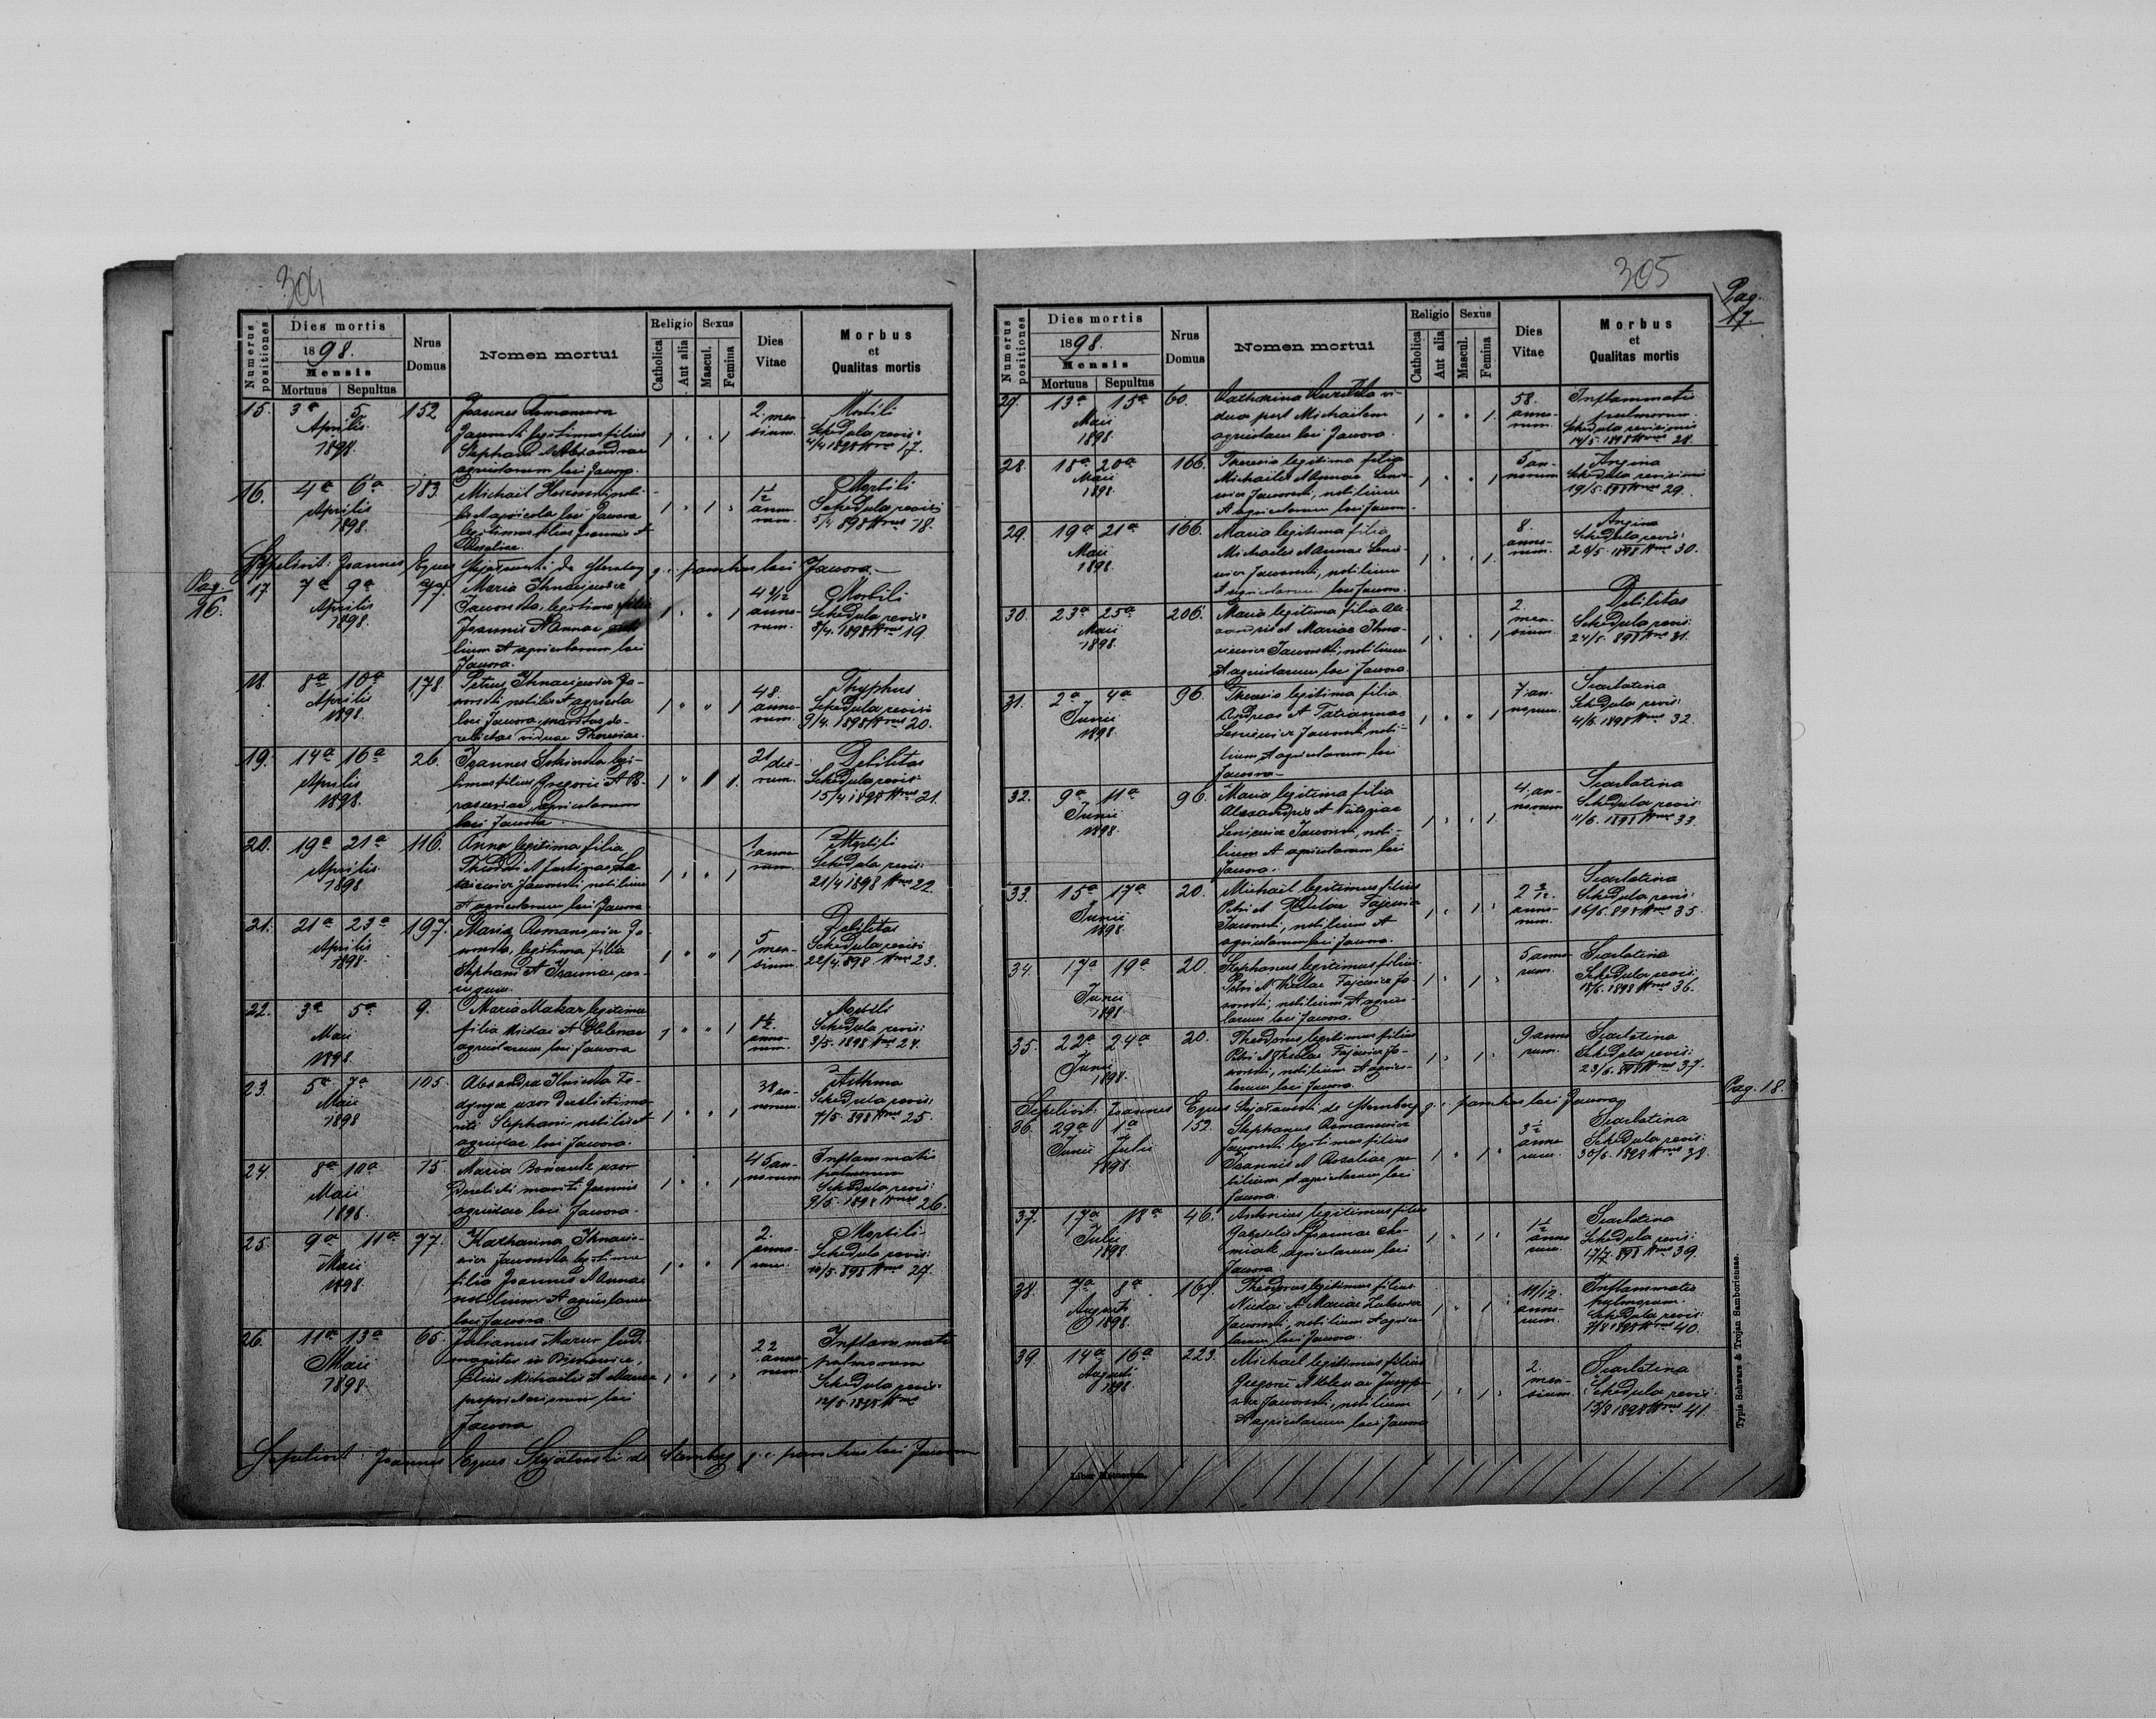 304
Numerus positiones
Dies mortis
1898.
Mensis
Mortuus Sepultus
Nrus Domus
Nomen mortui
Religio
Catholica
Aut alia
Sexus
Mascul.
Femina
Dies Vitae
Morbus
et
Qualitas mortis
15. 3a 5
Aprilis
1898.
152
Joannes
legitimus filius
Stephani & Alexandrae
agricolarum loci Jawora.
2. men-
sium.
Morbili
Schedula revis:
4/4 1898 Nrus 17.
16. 4a 6a
Aprilis
1898.
183.
Michaël
agricola loci Jawora
legitimus filius Joannis &
Rosaliae.
1½
anno-
rum.
Morbili
Schedula revisi
5/4 898 Nrus 18.
Sepelivit: Joannes Eques de Sternberg g. c. parochus loci Jawora.
Pag.
16.
17 7a 9a
Aprilis
1898.
77.
Maria Ihnaciewicz
Jaworska, legitima filia
Joannis & Annae nobi-
lium & agricolarum loci
Jawora.
anno-
rum.
Morbili
Schedula revis:
8/4. 1898 Nrus 19
18. 8a 10a
Aprilis
1898.
178.
Petrus Ihnaciewicz Ja-
worski nobilis & agricola
loci Jawora, maritus de-
relictae viduae Theresiae.
48.
anno-
rum.
Thyphus
Schedula revisi
9/4. 1898 Nrus 20.
19. 14a 16a
Aprilis
1898.
26.
Joannes legi-
timus filius Gregorii & Pa-
rasceviae, agricolarum
loci Jawora.
21 die-
rum.
Debilitas
Schedula revis:
15/4 1898 Nrus 21.
20. 19a 21a
Aprilis
1898
116.
Anna legitima filia
Theodori & Justinae
Jaworski nobilium
& agricolarum loci Jawora
1 anno-
rum.
Morbili
Schedula revis:
21/4 1898 Nrus 22.
21. 21a 23a
Aprilis
1898.
197.
Maria Romanowicz Ja-
worska, legitima filia
Stephani & Joannae con-
jugum.
5
men-
sium.
Debilitas
Schedula revisi
22/4. 898 Nrus 23.
22. 3a 5a
Maii
1898.
9.
Maria Makar, legitima
filia Nicolai & Helenae
agricolarum loci Jawora
1½.
anno-
rum.
Morbili
Schedula revis:
3/5. 1898 Nrus 24.
23. 5a 7a
Maii
1898
105.
Alexandra Ilnicka
uxor derelicti ma-
riti Stephani nobilis &
agricolae loci Jawora.
38 an-
norum.
Asthma
Schedula revis:
7/5. 898 Nrus 25.
24. 8a 10a
Maii
1898.
75.
Maria uxor
derelicti mariti Joannis
agricolae loci Jawora.
45 an-
norum
Inflammatio
pulmorum
Schedula revis:
9/5. 1898 Nrus 26.
25. 9a 11a
Maii
1898.
77.
Katharina Ihnacie-
wicz Jaworska legitima
filia Joannis & Annae
nobilium & agricolarum
loci Jawora
2.
anno-
rum.
Morbili
Schedula revis:
10/5. 898 Nrus 27.
26. 11a 13a
Maii
1898.
65.
Julianus Mazur ludi
magister in
filius Michaelis & Mariae
loci
Jawora
22
anno-
rum.
Inflammatio
pulmorum
Schedula revis:
12/5. 1898 Nrus
Sepelivit: Joannes Eques de Sternberg g. c. parochus loci Jawora
305
Pag.
17.
Numerus positiones
Dies mortis
1898.
Mensis
Mortuus Sepultus
Nrus Domus
Nomen mortui
Religio
Catholica
Aut alia
Sexus
Mascul.
Femina
Dies Vitae
Morbus
et
Qualitas mortis
27. 13a 15a
Maii
1898.
60.
Catharina vi-
dua post Michaelem
agricolam loci Jawora.
58.
anno-
rum.
Inflammatio
pulmorum.
Schedula revisionis
14/5. 1898 Nrus 28.
28. 18a 20a
Maii
1898.
166.
Theresia legitima filia
Michaelis & Annae
Jaworski, nobilium
& agricolarum loci Jawora.
5 an-
norum
Angina
Schedula revisionis
19/5. 898 Nrus 29.
29. 19a 21a
Maii
1898.
166.
Maria legitima filia
Michaelis & Annae
Jaworski, nobilium
& agricolarum loci Jawora.
8.
anno-
rum.
Angina
Schedula revis:
20/5. 1898 Nrus 30.
30. 23a 25a
Maii
1898.
206.
Maria legitima filia Ale-
xandri et Mariae Ihna-
ciewicz Jaworski, nobilium
& agricolarum loci Jawora.
2.
men-
sium.
Debilitas
Schedula revis:
24/5. 898 Nrus 31.
31. 2a 4a
Junii
1898.
96
Theresia legitima filia
Andreas & Tatiannae
Jaworski, nobi-
lium & agricolarum loci
Jawora
7. an-
norum.
Scarlatina
Schedula revis:
4/6. 1898 Nrus 32.
32. 9a 11a
Junii
1898.
96.
Maria legitima filia
Alexandri &
Jaworski, nobi-
lium & agricolarum loci
Jawora.
4. an-
norum
Scarlatina
Schedula revis:
11/6. 1898 Nrus 33.
33. 15a 17a
Junii
1898.
20.
Michaël legitimus filius
Petri et Theclae Fajewicz
Jaworski, nobilium &
agricolarum loci Jawora.
anno-
rum.
Scarlatina
Schedula revis:
16/6. 898 Nrus 35.
34. 17a 19a
Junii
1898.
20.
Stephanus legitimus filius
Petri & Theclae Fajewicz Ja-
worski, nobilium & agrico-
larum loci Jawora.
5 anno-
rum.
Scarlatina
Schedula revis:
18/6. 1898 Nrus 36.
35. 22a 24a
Junii
1898.
20.
Theodorus legitimus filius
Petri & Theclae Fajewicz Ja-
worski, nobilium & agrico-
larum loci Jawora.
9 anno-
rum.
Scarlatina
Schedula revis:
23/6. 898 Nrus 37.
Pag. 18.
Sepelivit: Joannes Eques de Sternberg g. c. parochus loci Jawora
36. 29a 1a
Junii Julii
1898.
152.
Stephanus Romanowicz
Jaworski legitimus filius
Joannis & Rosaliae, no-
bilium & agricolarum loci
Jawora.
3½
anno-
rum.
Scarlatina
Schedula revis:
30/6. 1898 Nrus 38.
37. 17a 18a
Julii
1898.
46.
Antonius legitimus filius
Gabrielis & Joannae Cho-
miak agricolarum loci
Jawora
1½
anno-
rum.
Scarlatina
Schedula revis:
17/7. 898 Nrus 39.
38. 7a 8a
Augusti
1898.
167.
Theodorus legitimus filius
Nicolai & Mariae
Jaworski, nobilium & agrico-
larum loci Jawora.
11/12.
anno-
rum.
Inflammatio
pulmorum.
Schedula revis:
7/8 1898 Nrus 40.
39. 14a 16a
Augusti
1898.
223.
Michael legitimus filius
Gregorii & Helenae
Jaworski, nobilium
& agricolarum loci Jawora
2.
men-
sium.
Scarlatina
Schedula revis:
15/8 1898 Nrus 41.
Typis Schwarz & Trojan Samboriensae.
Liber Mortuorum.